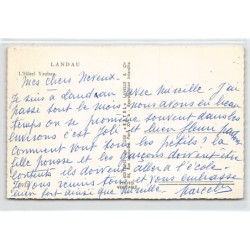 LANDAU
L'Hôtel Vauban
Mes chers Neveux.
Je suis à Landau avec mireille. J'ai
passé tout le mois nous avons eu beau
temps on se promène souvent dans les
environs c'est joli et bien fleuri partout
Comment vont tous les petits? la
fille pousse et les garçons doivent être
contents ils doivent aller à l'école.
tous et vous embrasse
fort ainsi que mireille. Marcel
VÉRITABLE